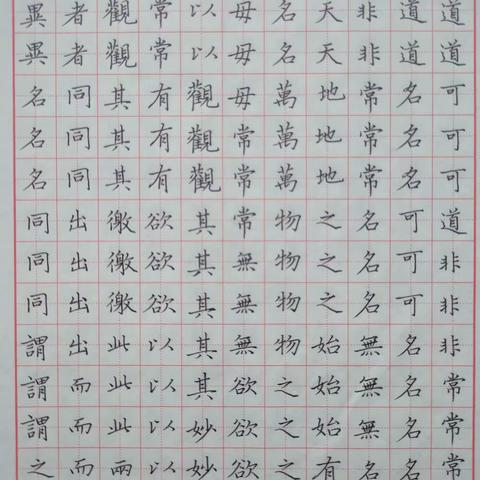 道道可可可道非非非常常常
道道名名名可可可名名名名
非非常常常名名名無無無名
天天地地地之之之始始始有
名名萬萬萬物物物物之之之
母母母常常常無無無欲欲欲
以以觀觀觀其其其其其妙妙
常常有有有欲欲欲以以以以
觀觀其其其徼徼徼此此此兩
者者同同同出出出出而而而
異異名名名同同同謂謂謂之